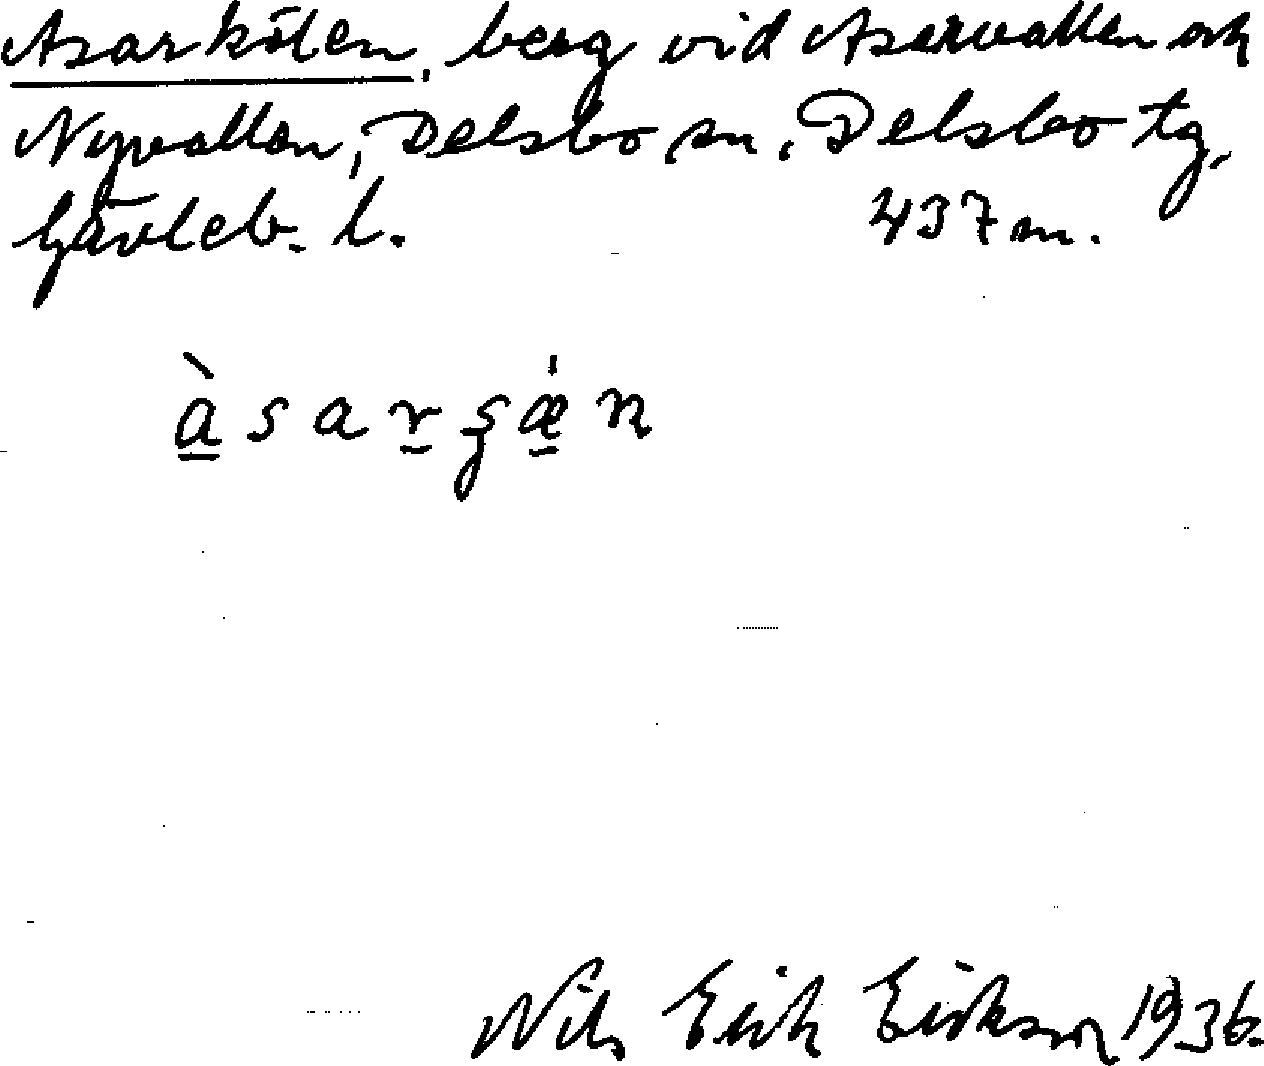 Asarkölen, berg vid Asarvallen och
Nyvallen, Delsbo sn, Delsbo tg,
Gävleb. l. 437 m.
Nils Erik Eriksson 1936.